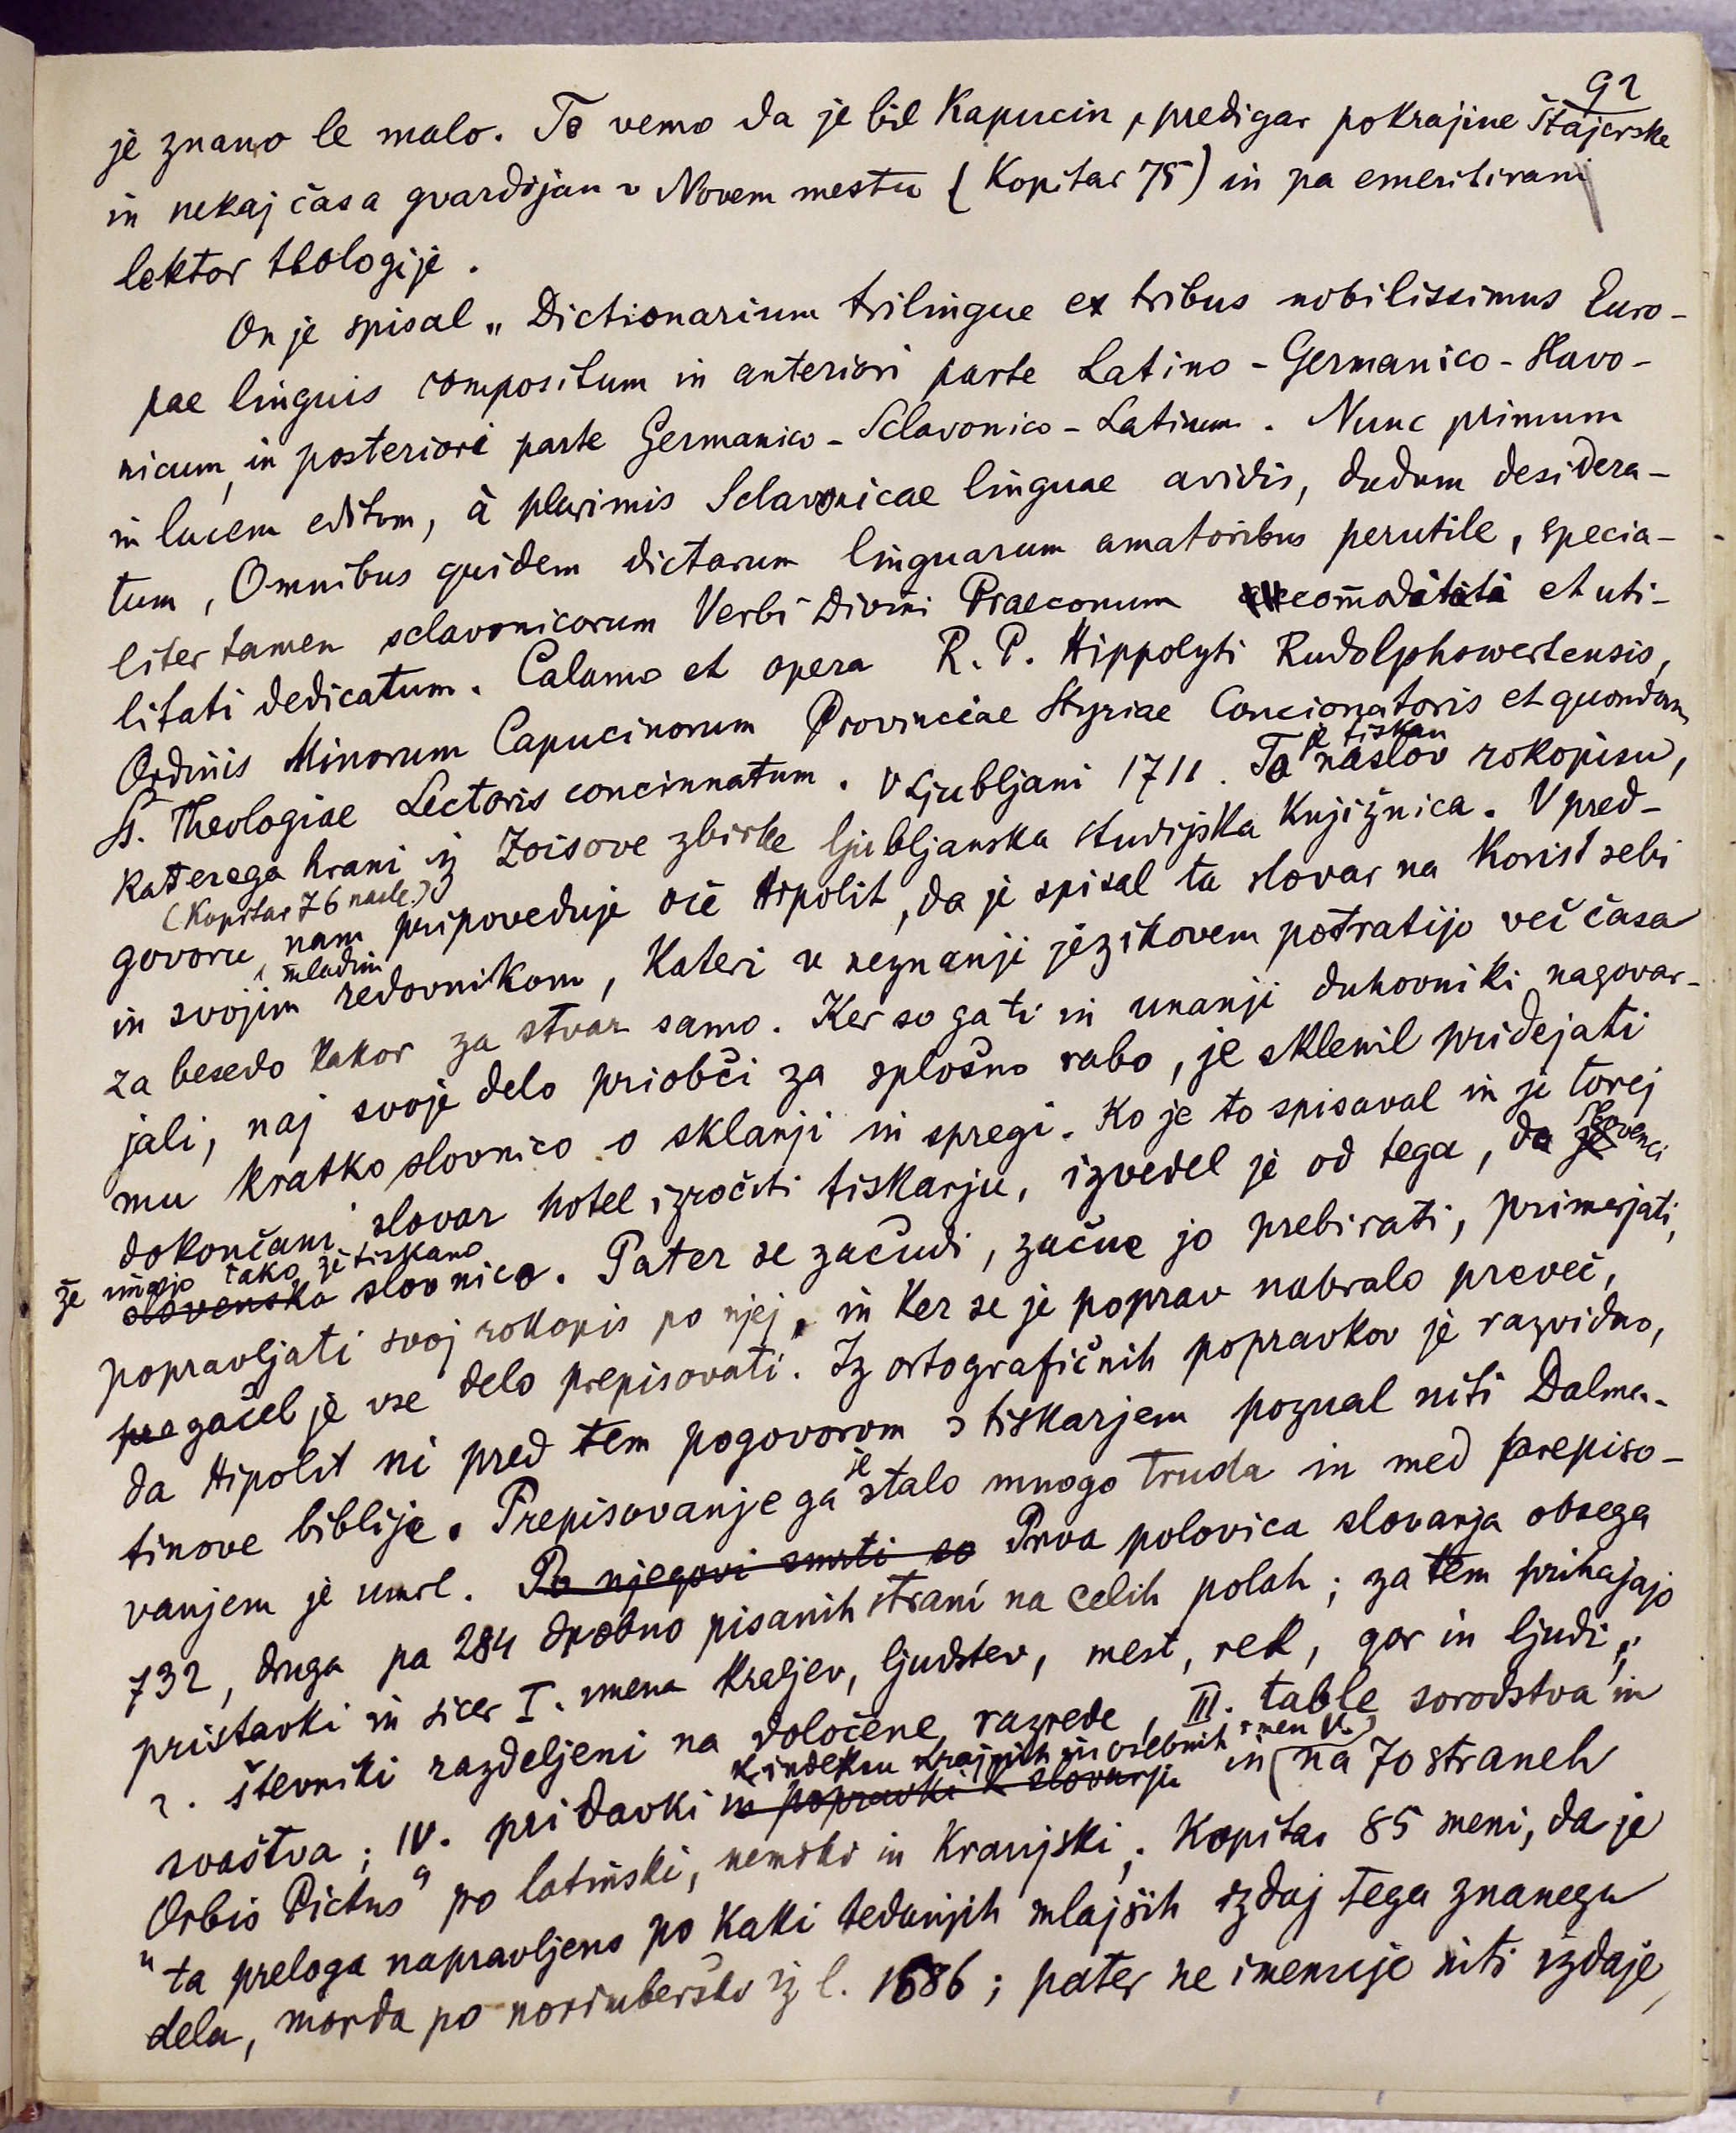 92
je znano le malo. To vemo da je bil Kapucin, predigar pokrajine Štajerske
in nekaj časa gvardijan v Novem mestu (Kopitar 75) in pa emeritirani
lektor theologije.
On je spisal „Dictionarium trilingue ex tribus nobilissimus Euro-
pae linguis compositum in anteriori parte Latino-Germanico-Slavo-
nicum, in posteriori parte Germanico-Sclavonico-Latinum. Nunc primum
in lucem editum, à plurimis Sclavonicae linguae avidis, dudum desidera-
tum, Omnibus quidem dictarum linguarum amatoribus perutile, specia-
liter tamen sclavonicorum Verbi Divini Praeconum com̄oditati et uti-
litati dedicatum. Calamo et opera R. P. Hippolyti Rudolphswertensis,
Ordinis Minorum Capucinorum Provinciae Styriae Concionatoris et quondam
SS. Theologiae Lectoris concinnatum. V Ljubljani 1711. Ta naslov rokopisu,
je tiskan
katerega hrani iz Zoisove zbirke ljubljanska studijska knjižnica. V pred-
(Kopitar 76 nasl.)
govoru nam pripoveduje oče Hipolit, da je spisal ta slovar na korist sebi
mladim
in svojim redovnikom, kateri v neznanji jezikovem potratijo več časa
za besedo kakor za stvar samo. Ker so ga ti in unanji duhovniki nagovar-
jali, naj svoje delo priobči za splošno rabo, je sklenil pridejati
mu kratko slovnico o sklanji in spregi. Ko je to spisaval in je torej
dokončani slovar hotel izročiti tiskarju, izvedel je od tega, da je Slovenci
že imajo tako že tiskano
slovenska slovnico. Pater se začudi, začne jo prebirati, primerjati,
popravljati svoj rokopis po njej, in ker se je poprav nabralo preveč,
pre začel je vse delo prepisovati. Iz ortografičnih popravkov je razvidno,
da Hipolit ni pred tem pogovorom s tiskarjem poznal niti Dalma-
tinove biblije. Prepisovanje ga je stalo mnogo truda in med prepiso-
vanjem je umrl. Po njegovi smrti so Prva polovica slovarja obsega
732, druga pa 284 drobno pisanih strani na celih polah; za tem prihajajo
pristavki in sicer I. imena kraljev, ljudstev, mest, rek, gor in ljudi;
2. števniki razdeljeni na določene razrede, III. table sorodstva in
k indeksu krajnih in osebnih imen V.)
svaštva; IV. pridavki in popravki k slovarju in (na 70 straneh
Orbis Pictus“ po latinski, nemški in kranjski; Kopitar 85 meni, da je
„ta preloga napravljena po kaki tedanjih mlajših izdaj tega znanega
dela, morda po norimberško iz l. 1686; pater ne imenuje niti izdaje,